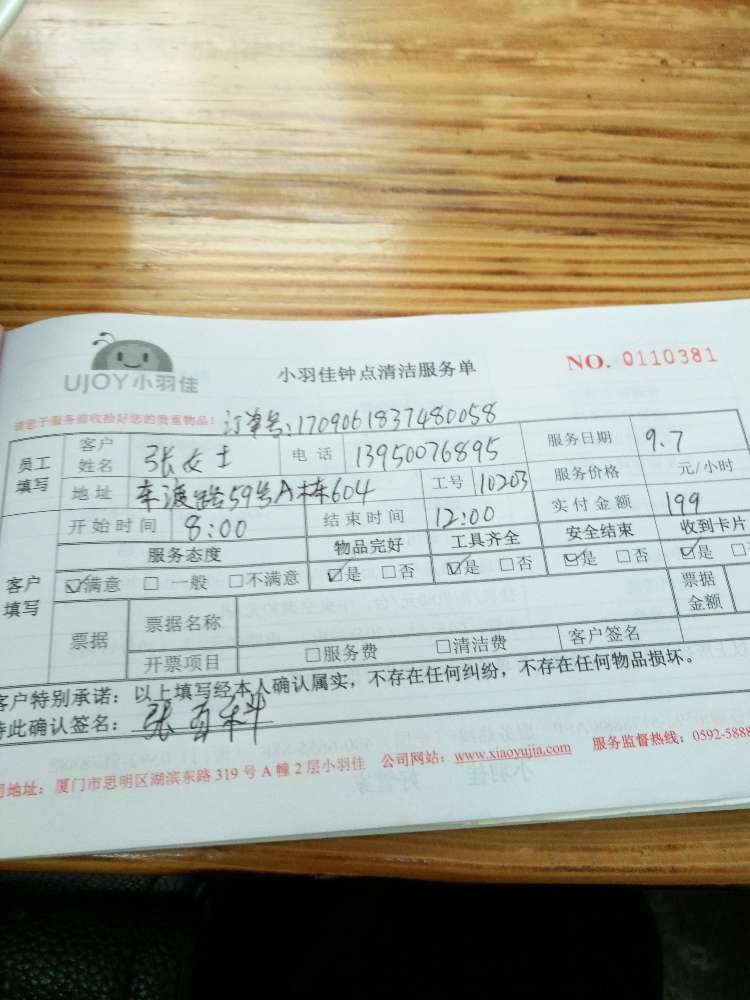 UJOY小羽佳
小羽佳钟点清洁服务单
NO. 0110381
请您于服务前收拾好您的贵重物品!
订单号:1709061837480058
员工填写 客户姓名 张女士 电话 13950076895 服务日期 9.7
地址 东渡路59号A栋604 工号 10203 服务价格 元/小时
开始时间 8:00 结束时间 12:00 实付金额 199
客户填写 服务态度 物品完好 工具齐全 安全结束 收到卡片
☑满意 □一般 □不满意 ☑是 □否 ☑是 □否 ☑是 □否 ☑是
票据 票据名称 票据金额
开票项目 □服务费 □清洁费 客户签名
客户特别承诺:以上填写经本人确认属实,不存在任何纠纷,不存在任何物品损坏。
特此确认签名:张有科
司地址:厦门市思明区湖滨东路319号A幢2层小羽佳 公司网站:www.xiaoyujia.com 服务监督热线:0592-5888